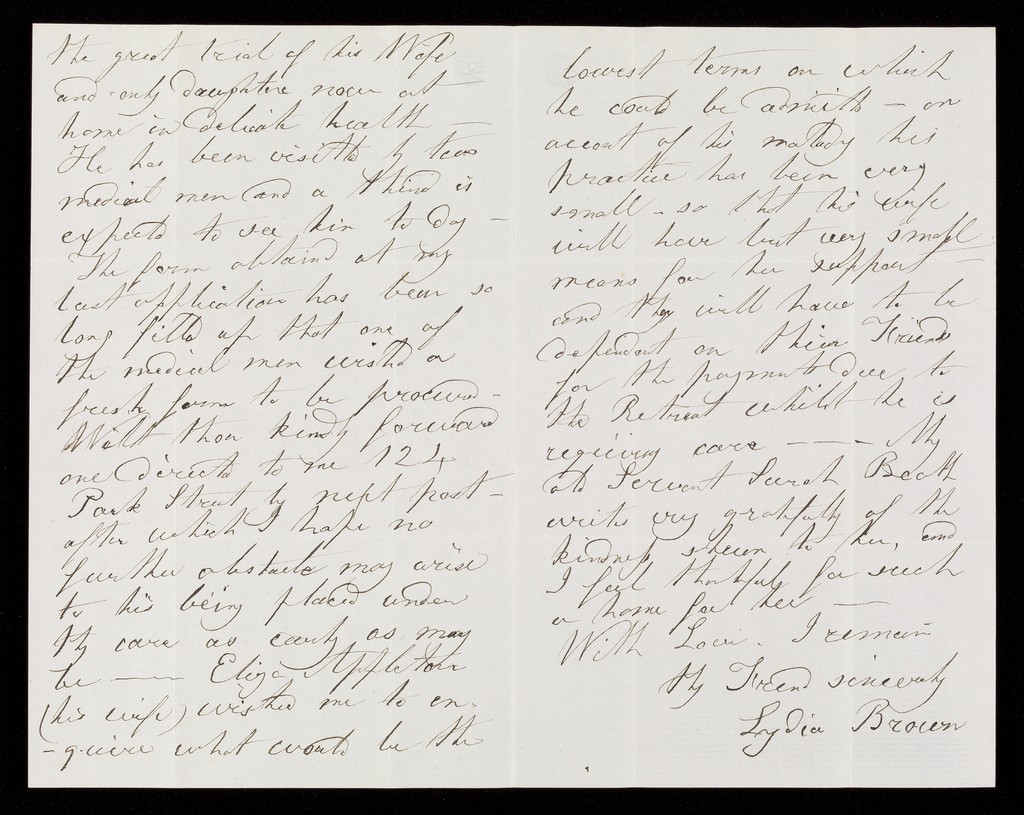 the great trial of his Wife
and only daughter now at
home in delicate health —
He has been visited by two
medical men and a third is
expected to see him to day —
The form obtaind at my
last application has been so
long filld up that one of
the medical men wishd a
fresh form to be procured -
Wilt thou kindly forward
one directed to me 124
Park Street by next post -
after which I hope no
further obstacle may arise
to his being placed under
thy care as early as may
be —— Eliza Appleton
(his wife) wished me to en-
-quire what would be the
lowest terms on which
he could be admitted - on
account of his malady his
practice has been very
small - so that his wife
will have but very small
means for her support -
and they will have to be
dependent on their Friends
for the payment due to
the Retreat whilst he is
receiving care ——— My
old Servant Sarah Booth
writes very gratefully of the
kindness shewn to her, and
I feel thankful for such
a home for her —
With Love. I remain
thy Friend sincerely
Lydia Brown